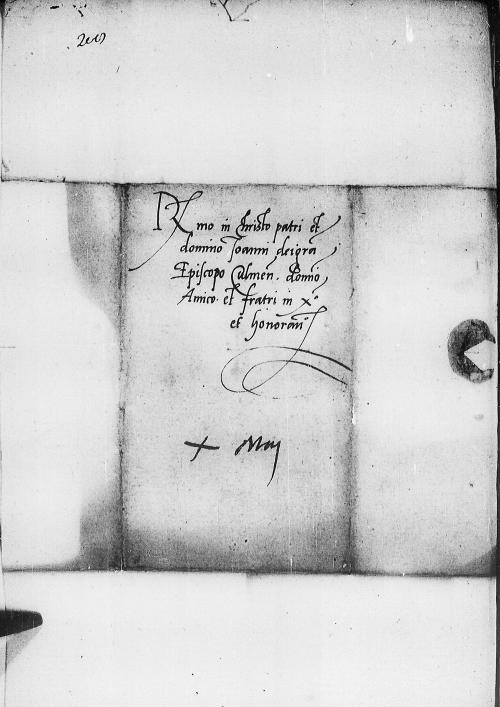 Rmo in Christo patri et
domino Joanni dei gra
Episcopo Culmen. domino
Amico et fratri in x°
et honoran
x Maij